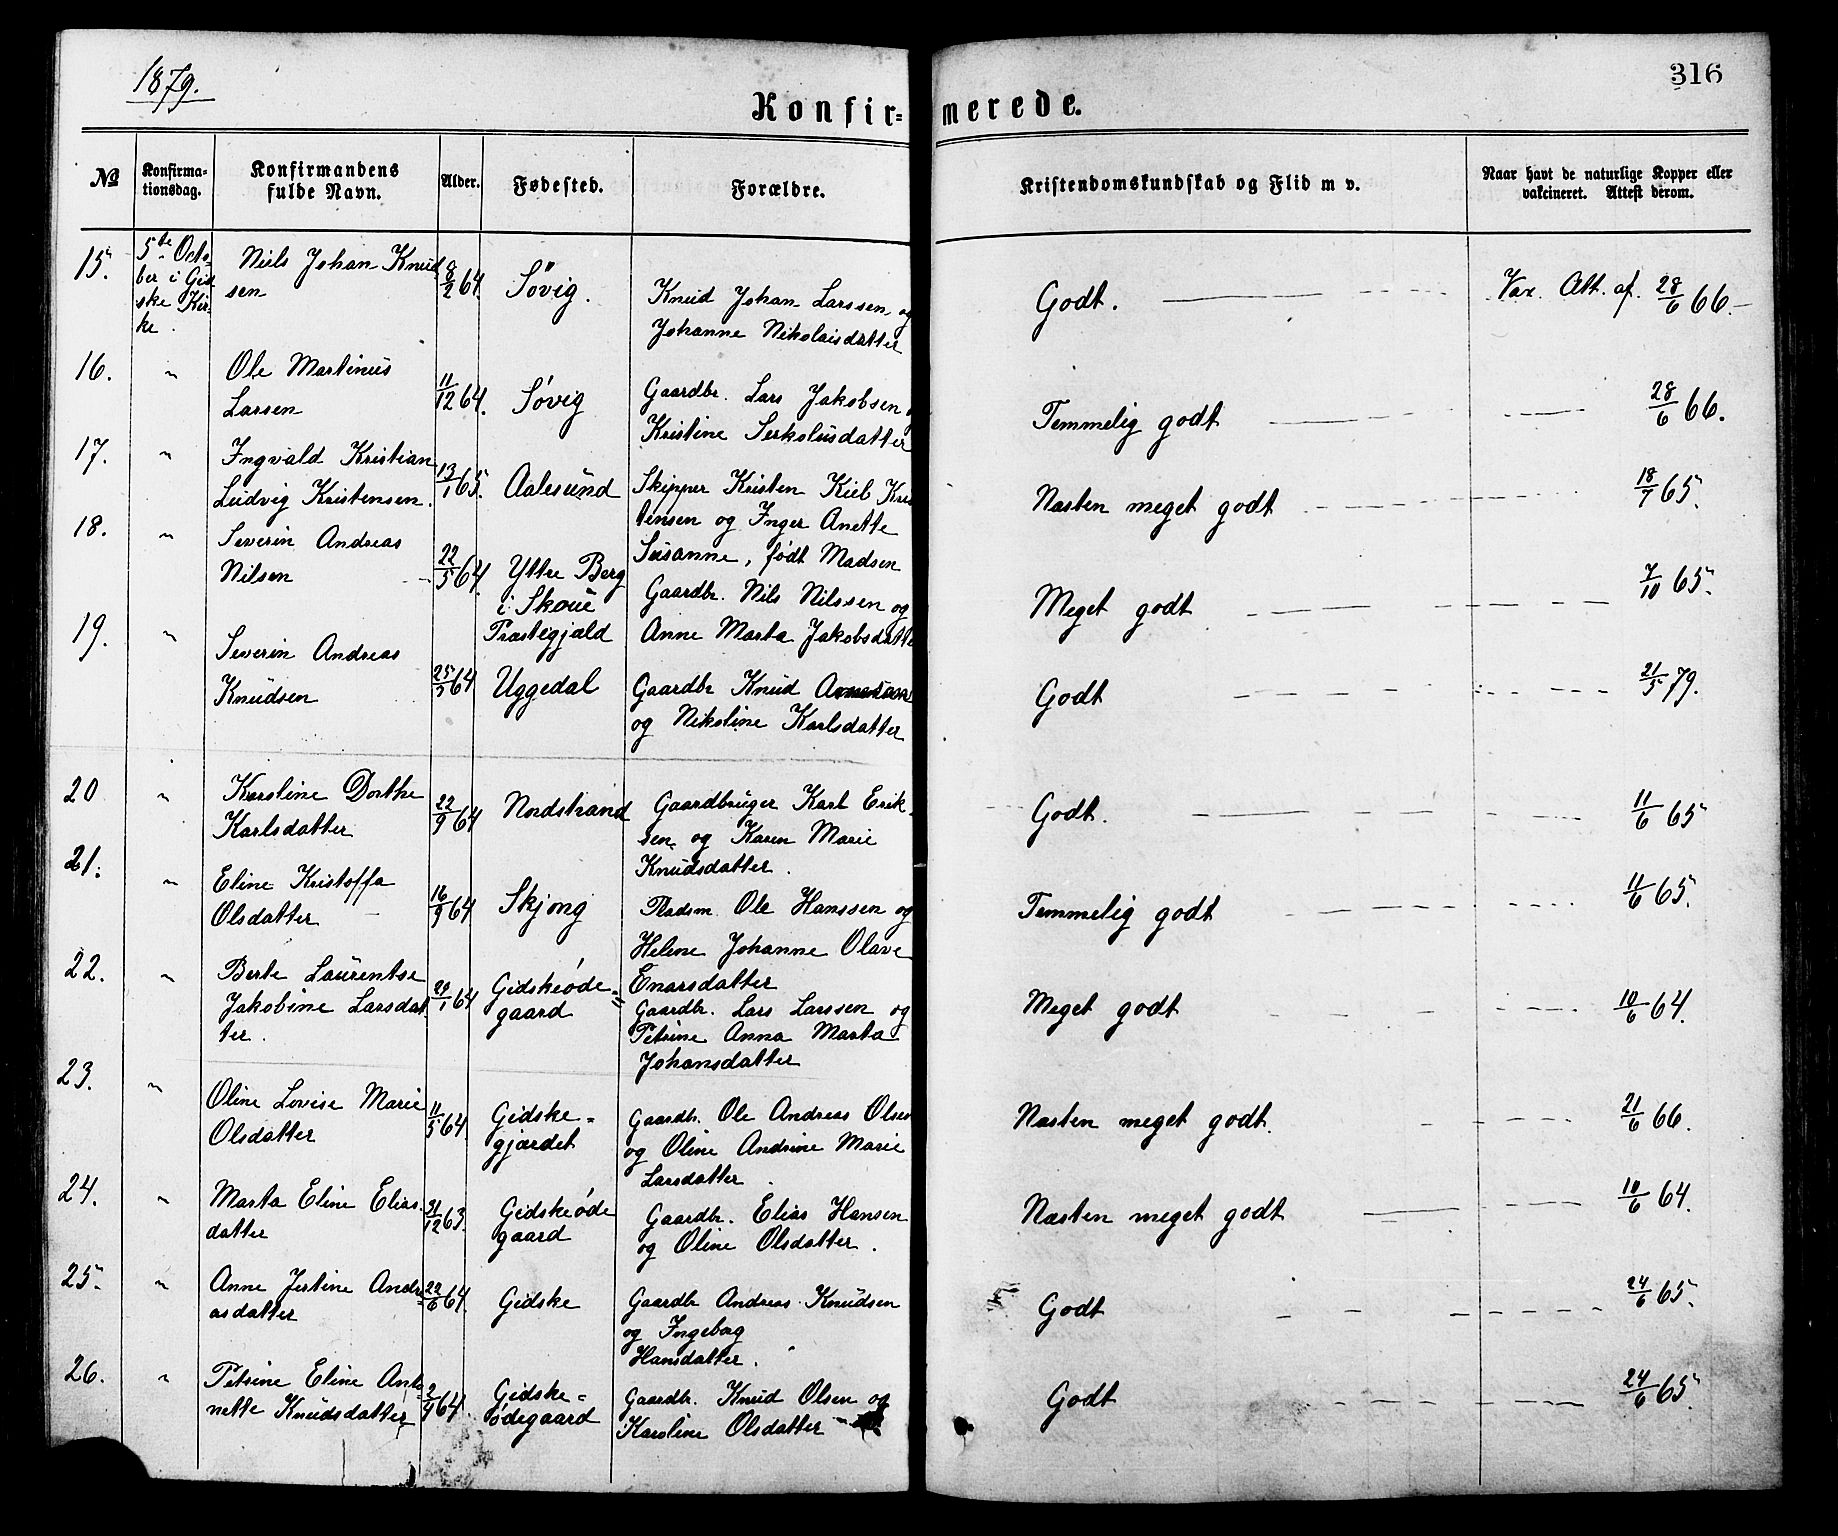 1879.
316
Konfir=merede.
№
Konfirma=
tionsdag.
Konfirmandens
fulde Navn.
Alder.
Fødested.
Forældre.
Kristendomskundskab og Flid m v.
Naar havt de naturlige Kopper eller
vakcineret. Attest derom.
15. 5te Octo-
ber i Gid
ske Kir-
ke.
Niels Johan Knud
sen
8/2 64.
Søvig.
Knud Johan Larssen og
Johanne Nikolaisdatter
Godt.
Vax. Att. af 28/6 66.
16. "
Ole Martinus
Larsen
11/12 64.
Søvig
Gaardbr. Lars Jakobsen
Kristine Serkolusdatter
Temmelig godt
28/6 66.
17. "
Ingvald Kristian
Ludvig Kristensen.
13/1 65.
Aalesund
Skipper Kristen Kieb Kris
tensen og Inger Anette
Susanne, født Madsen
Næsten meget godt
18/7 65.
18. "
Severin Andreas
Nilsen
22/5 64.
Yttre Berg
i Skoue
Præstegjæld
Gaardbr. Nils Nilssen og
Anne Marta Jakobsdatte
Meget godt
7/10 65.
19. "
Severin Andreas
Knudsen
25/5 64
Uggedal
Gaardbr Knud
og Nikoline Karlsdatter
Godt
21/5 79.
20 "
Karoline Dorthe
Karlsdatter
22/9 64
Nordstrand
Gaardbruger Karl Erik-
sen og Karen Marie
Knudsdatter.
Godt.
11/6 65
21. "
Eline Kristoffa
Olsdatter
16/9 64
Skjong
Pladsm. Ole Hanssen og
Helene Johanne Olave
Enarsdatter
Temmelig godt
11/6 65.
22. "
Berte Laurentse
Jakobine Larsdat
ter.
29/1 64
Gidskeøde=
gaard
Gaardbr. Lars Larssen og
Petrine Anna Marta
Johansdatter
Meget godt
10/6 64.
23. "
Oline Lovise Marie
Olsdatter
11/5 64.
Gidske=
gjærdet
Gaardbr. Ole Andreas Olsen
og Oline Andrine Marie
Larsdatter.
Næsten meget godt.
21/6 66.
24. "
Marta Eline Elias
datter
31/12 63.
Gidskeøde
gaard
Gaardbr. Elias Hansen
og Oline Olsdatter.
Næsten meget godt
10/6 64.
25. "
Anne Jertine Andre
asdatter
22/6 64.
Gidske
Gaardbr Andreas Knudsen
og Ingeborg
Hansdatter.
Godt
24/6 65.
26. "
Petrine Eline Anto
nette Knudsdatter
2/9 64.
Gidske=
ødegaard
Gaardbr. Knud Olsen og
Karoline Olsdatter
Godt
24/6 65.